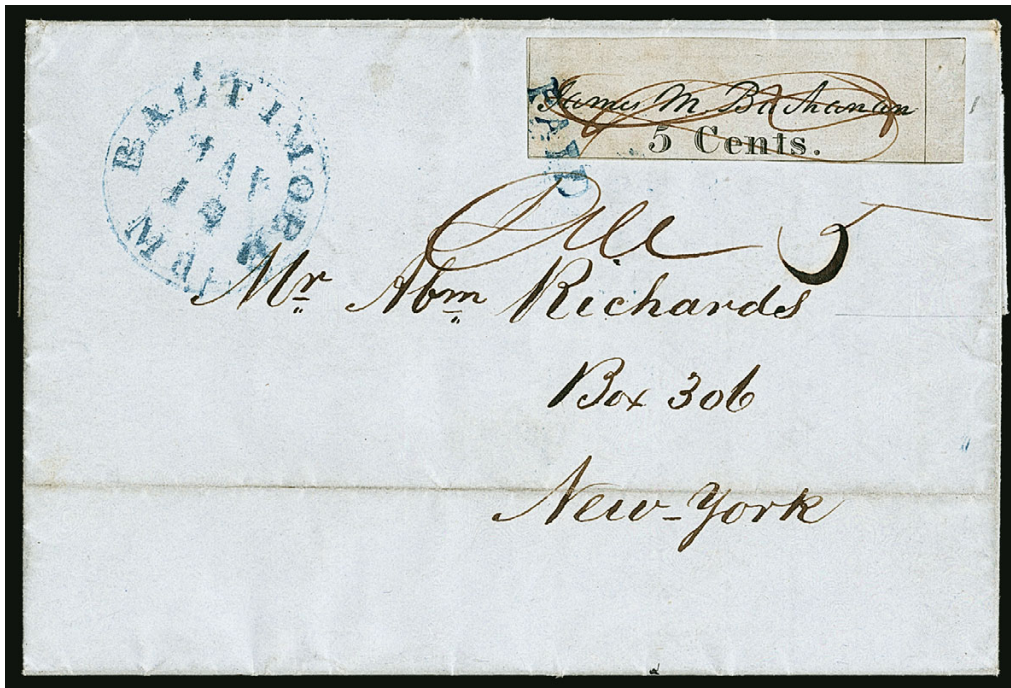 BALTIMORE
PAID
James M Buchanan
5 Cents.
5
Mr. Abm Richards
Box 306
New-York